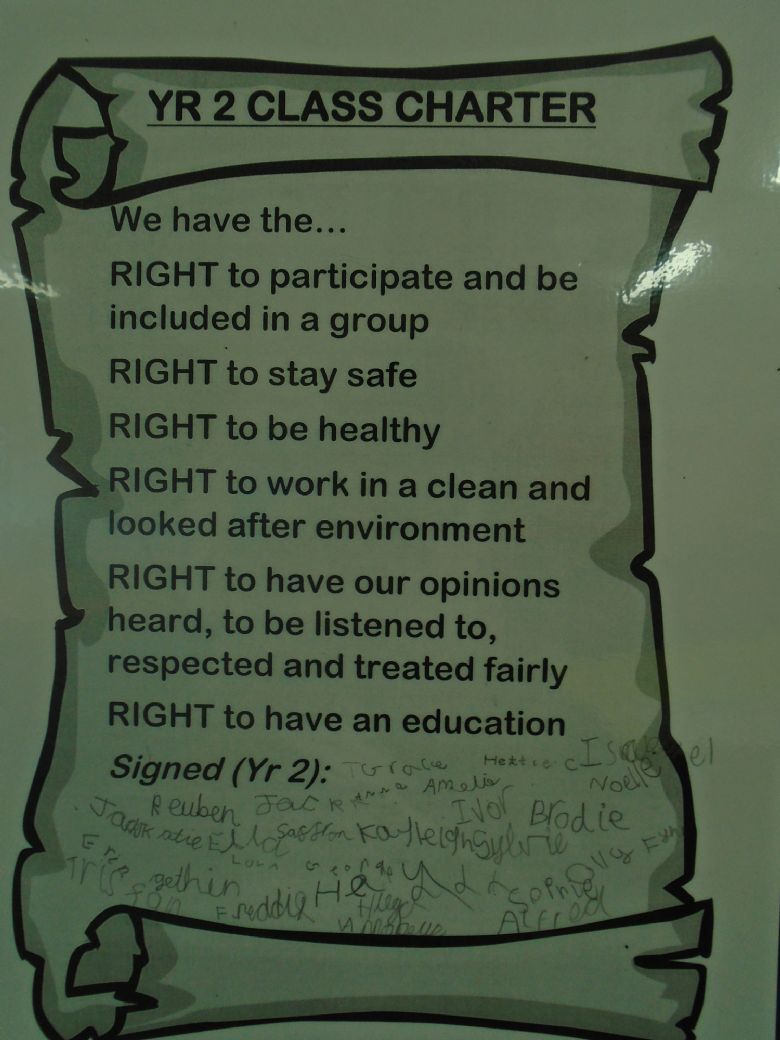 YR 2 CLASS CHARTER
We have the...
RIGHT to participate and be
included in a group
RIGHT to stay safe
RIGHT to be healthy
RIGHT to work in a clean and
looked after environment
RIGHT to have our opinions
heard, to be listened to,
respected and treated fairly
RIGHT to have an education
Signed (Yr 2):
Amelia Noelle
Reuben Jack Ivor Brodie
Ella Saffron Kayleigh Sylvie
George
Tristan gethin Sophie
Freddie Alfred